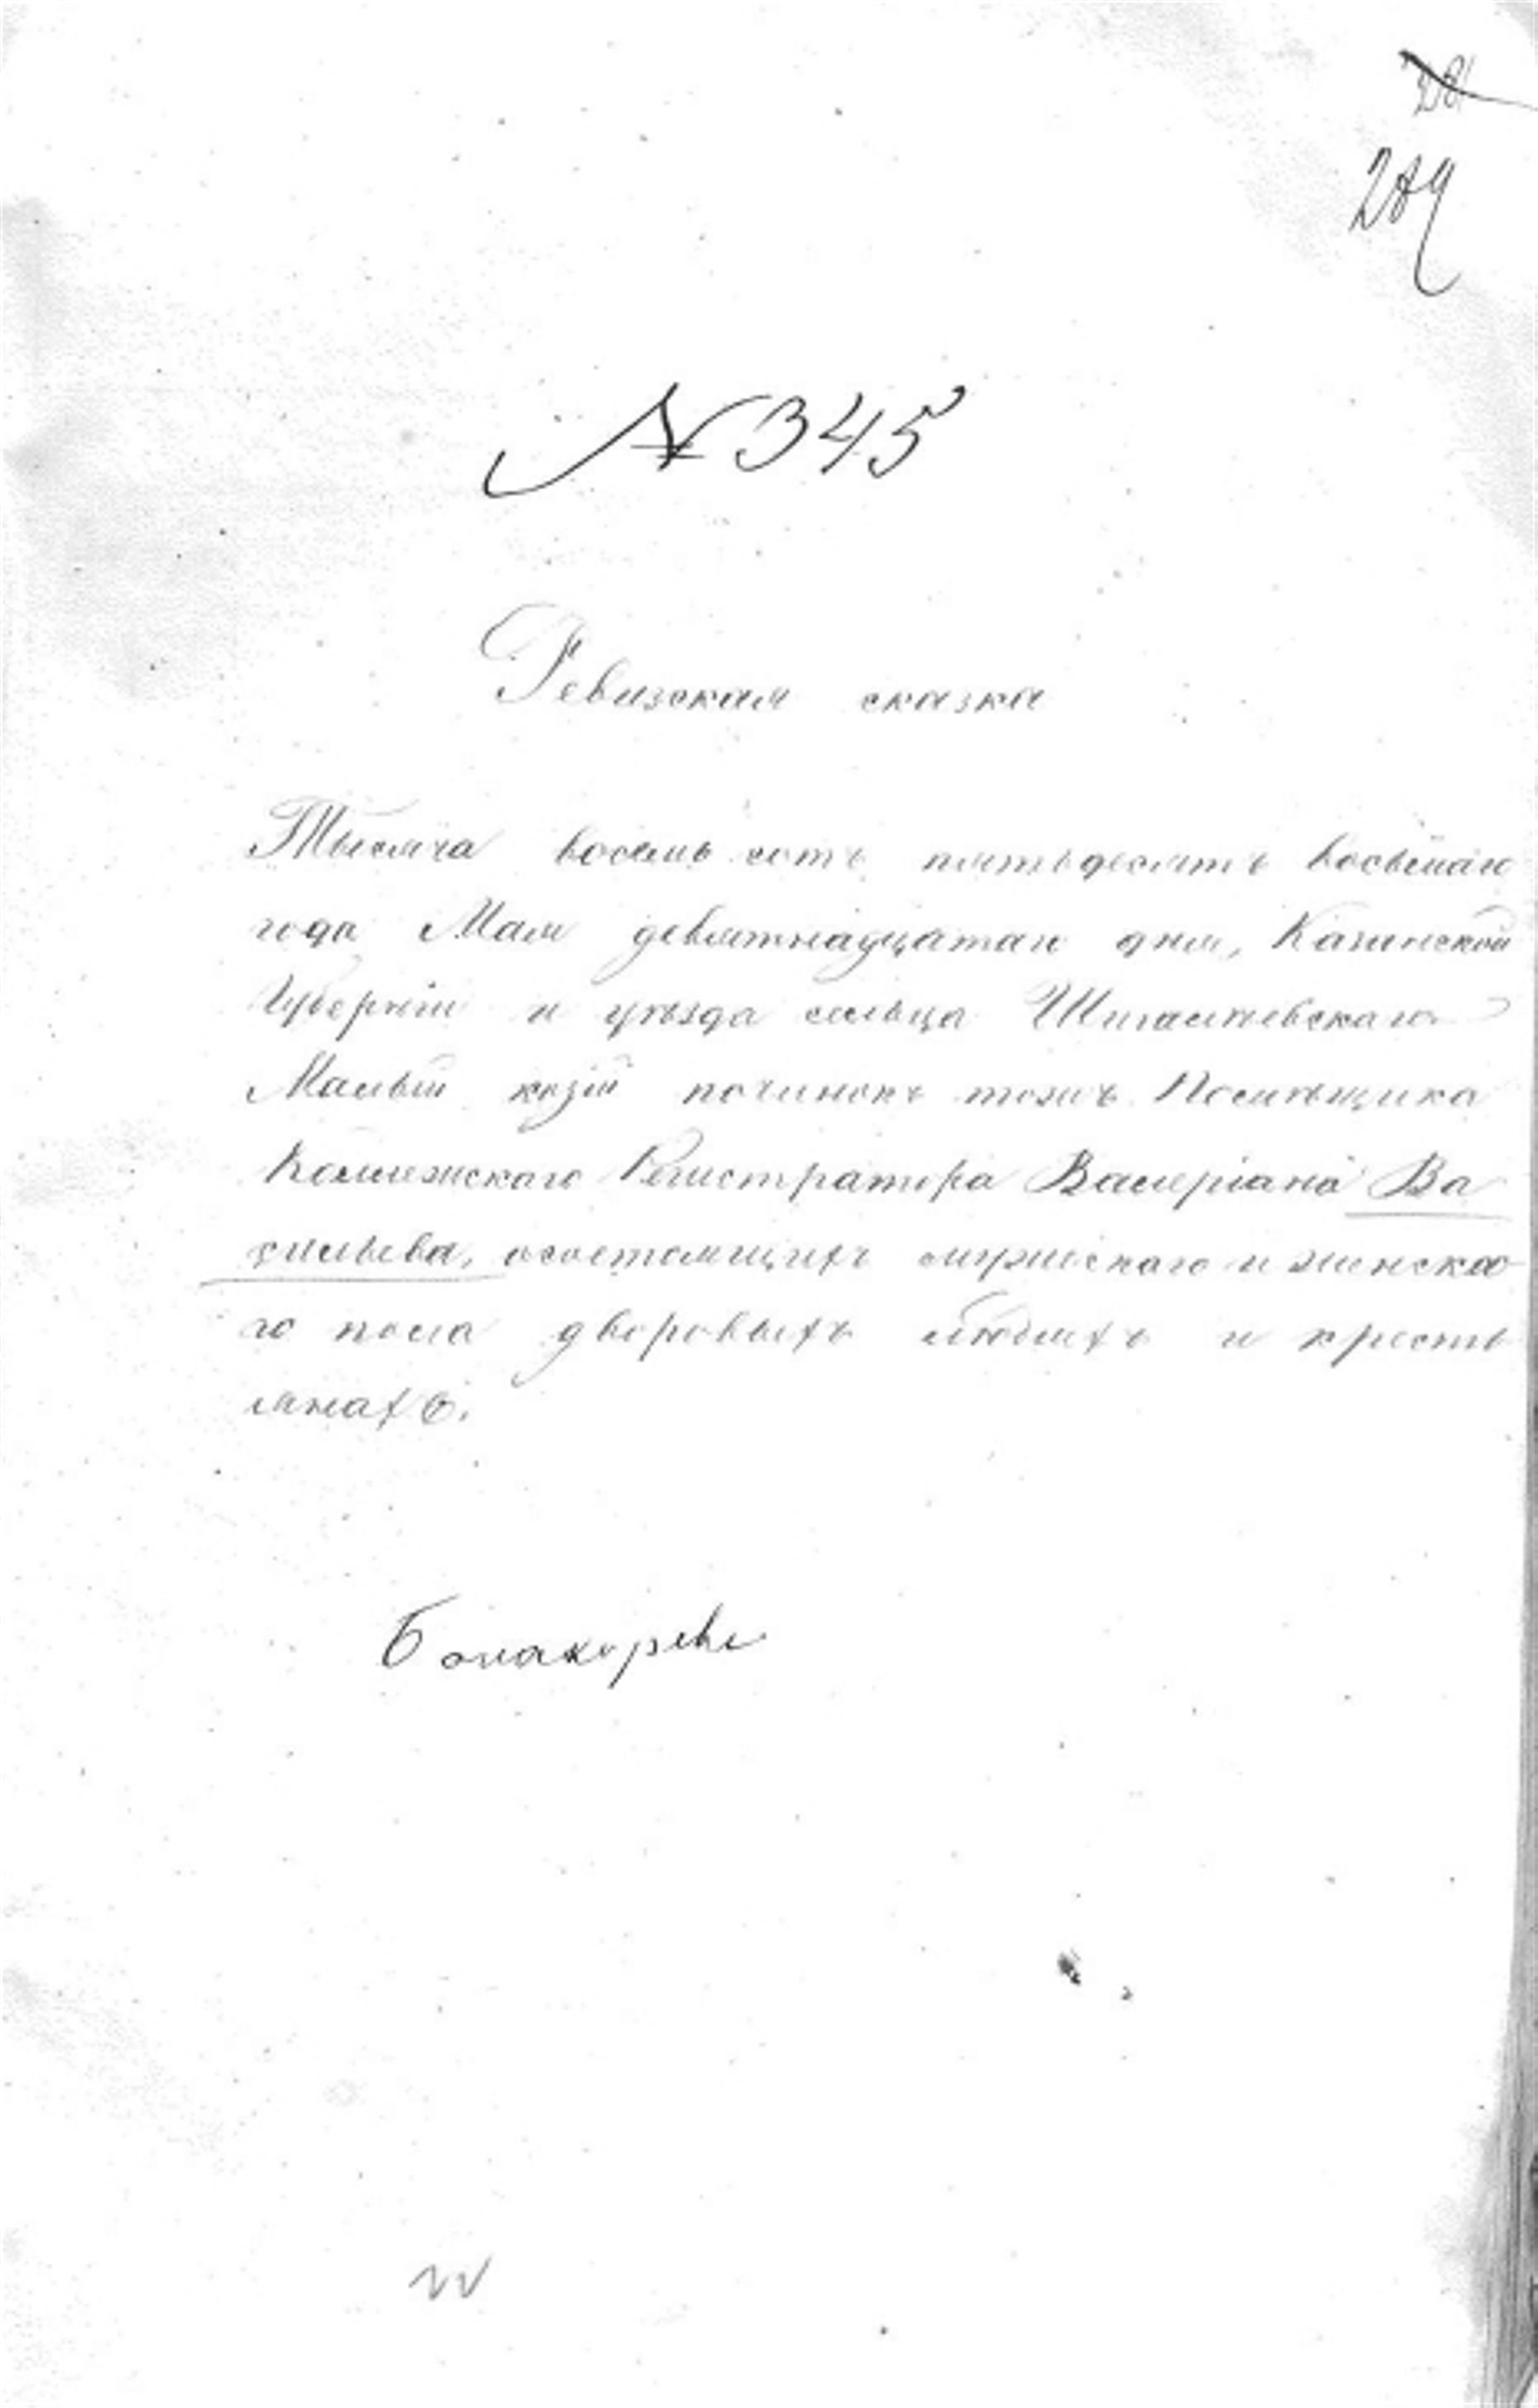 289
№ 345
Ревизская сказка
Тысяча восемь сотъ пятьдесятъ восьмаго
года Мая девятнадцатаго дня, Казанской
Губернiи и уѣзда сельца
Малый козiй починокъ тожъ Помѣщика
Коллежскаго Регистратора Валерiана Ва
сильева, осостоящихъ мужескаго и женска
го пола дворовыхъ людяхъ и кресть
янахъ.